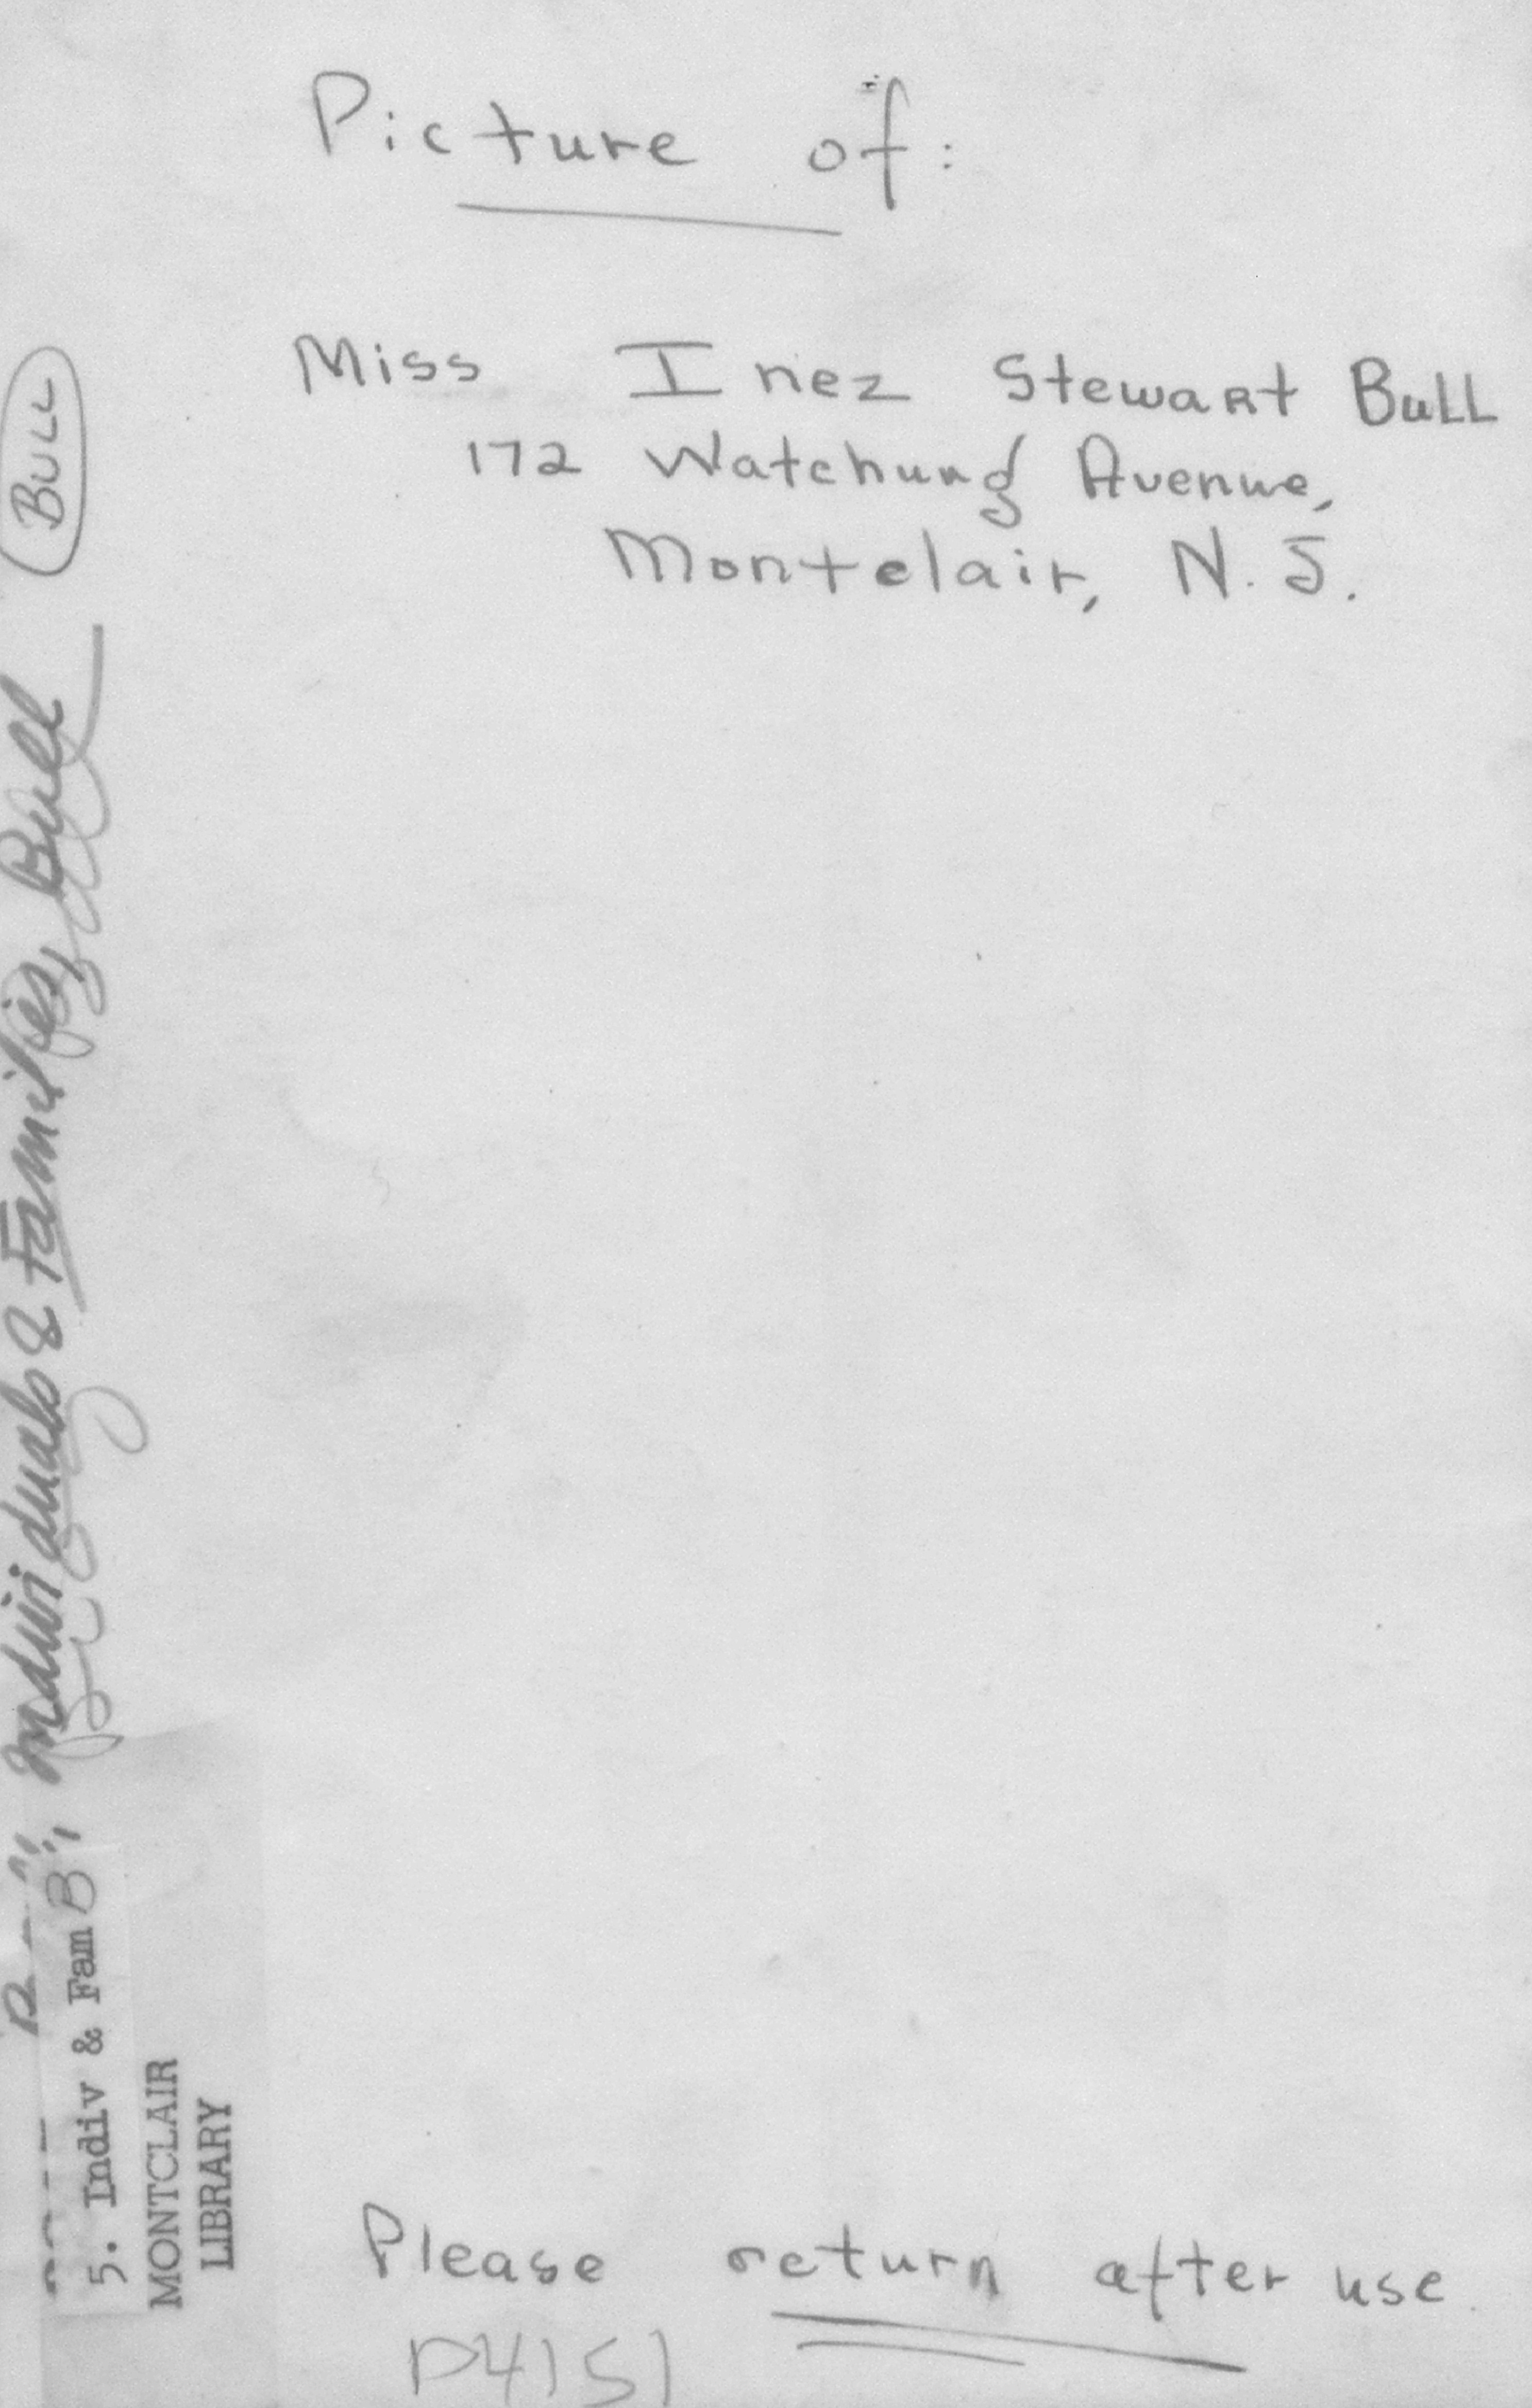 Picture of:
Miss Inez Stewart Bull
172 Watchung Avenue,
Montclair, N. J.
Please return after use
P4151
BULL
Individuals & Families, Bull
5. Indiv & Fam B
MONTCLAIR
LIBRARY